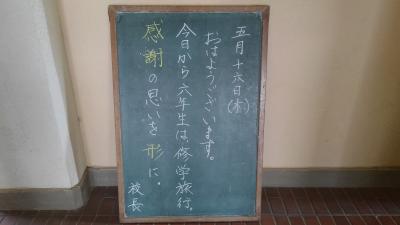 五月十六日(木)
おはようございます。
今日から六年生は、修学旅行。
感謝の思いを形に。
校長